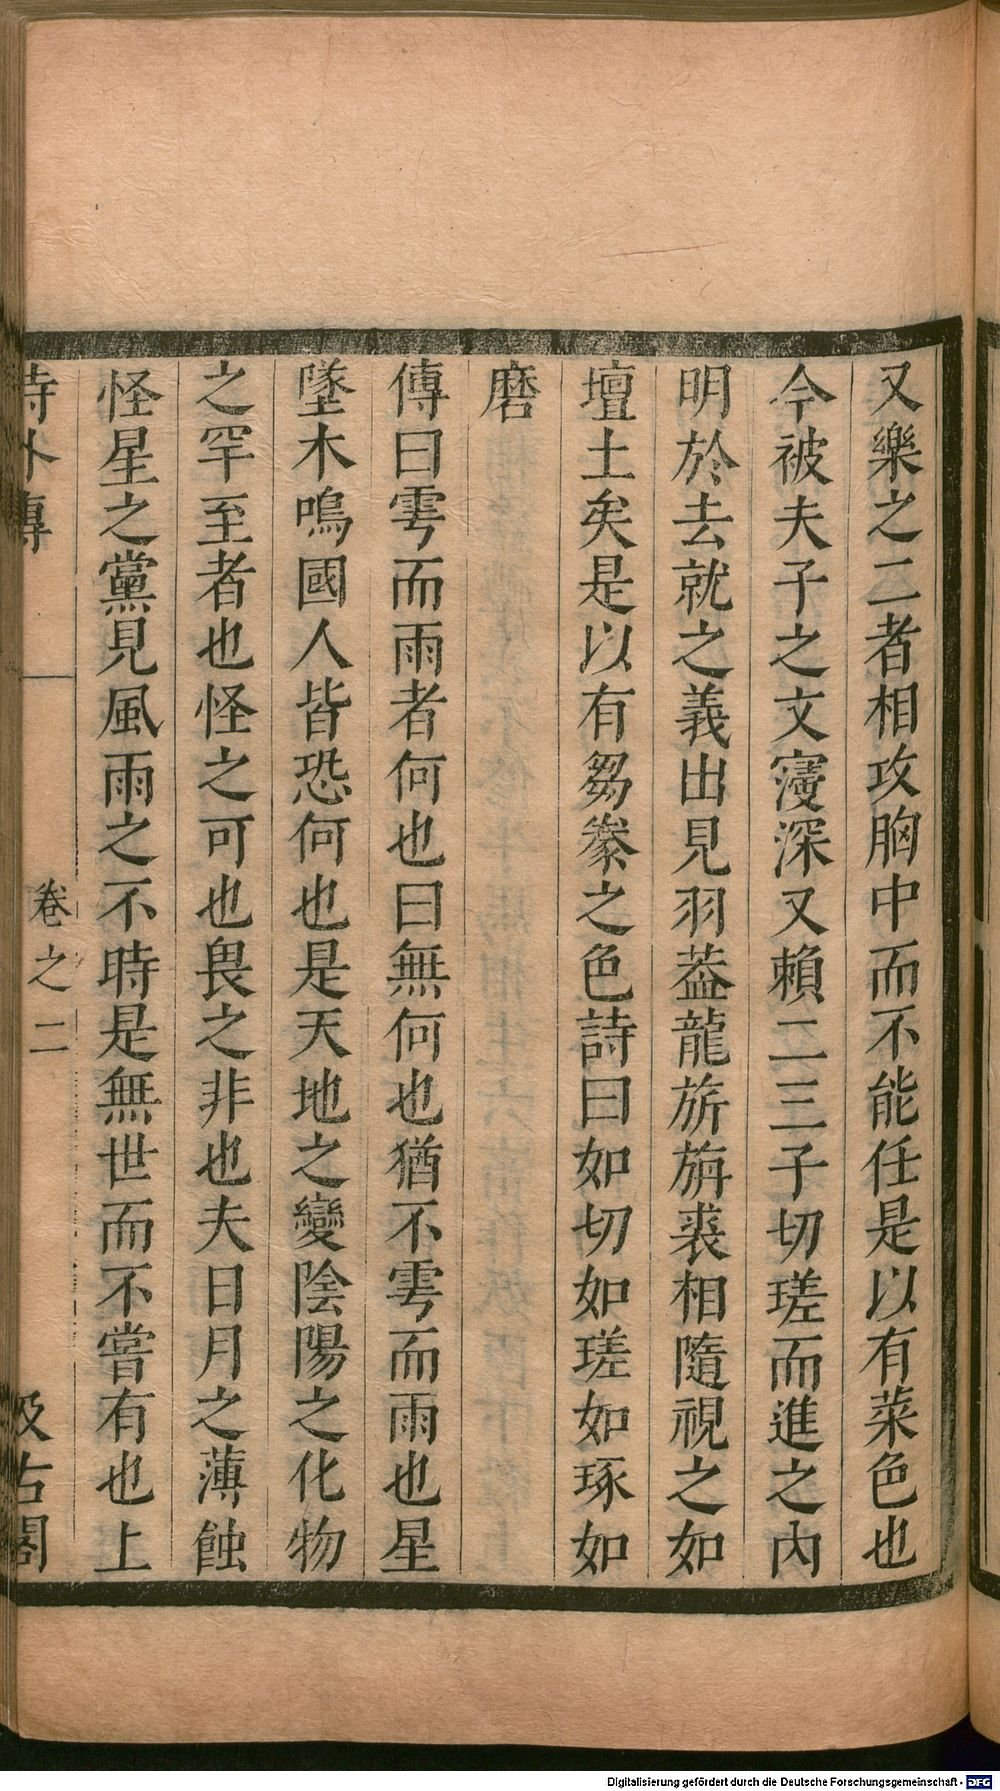 又樂之二者相攻胸中而不能任是以有菜色也
今被夫子之文寖深又賴二三子切瑳而進之內
明於去就之義出見羽葢龍旂旃裘相隨視之如
壇土矣是以有芻豢之色詩曰如切如瑳如琢如
磨
傳曰雩而雨者何也曰無何也猶不雩而雨也星
墜木鳴國人皆恐何也是天地之變陰陽之化物
之罕至者也怪之可也畏之非也夫日月之薄蝕
怪星之黨見風雨之不時是無世而不嘗有也上
詩外傳 卷之二 汲古閣
Digitalisierung gefördert durch die Deutsche Forschungsgemeinschaft - DFG